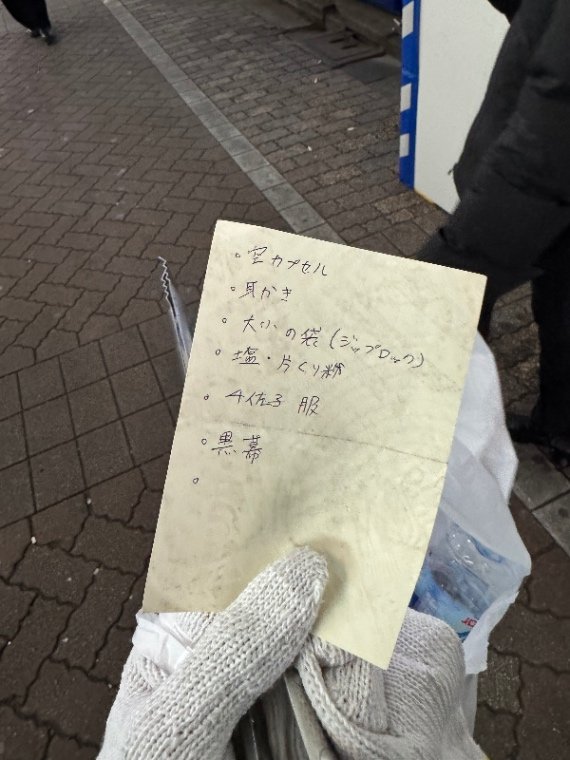 。空カプセル
。耳かき
。大小の袋(ジップロック)
。塩・片くり粉
。服
。黒幕
。